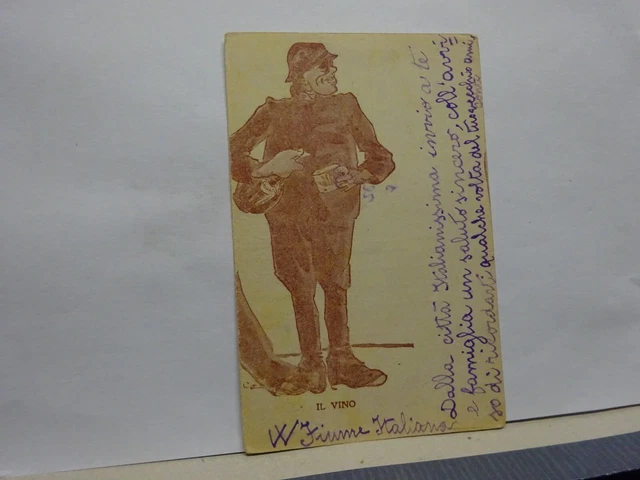 IL VINO
W Fiume Italiana
Dalla città Italianissima invio a te
e famiglia un saluto sincero, coll'avvi=
so di ricordarti qualche volta del tuo vecchio ami